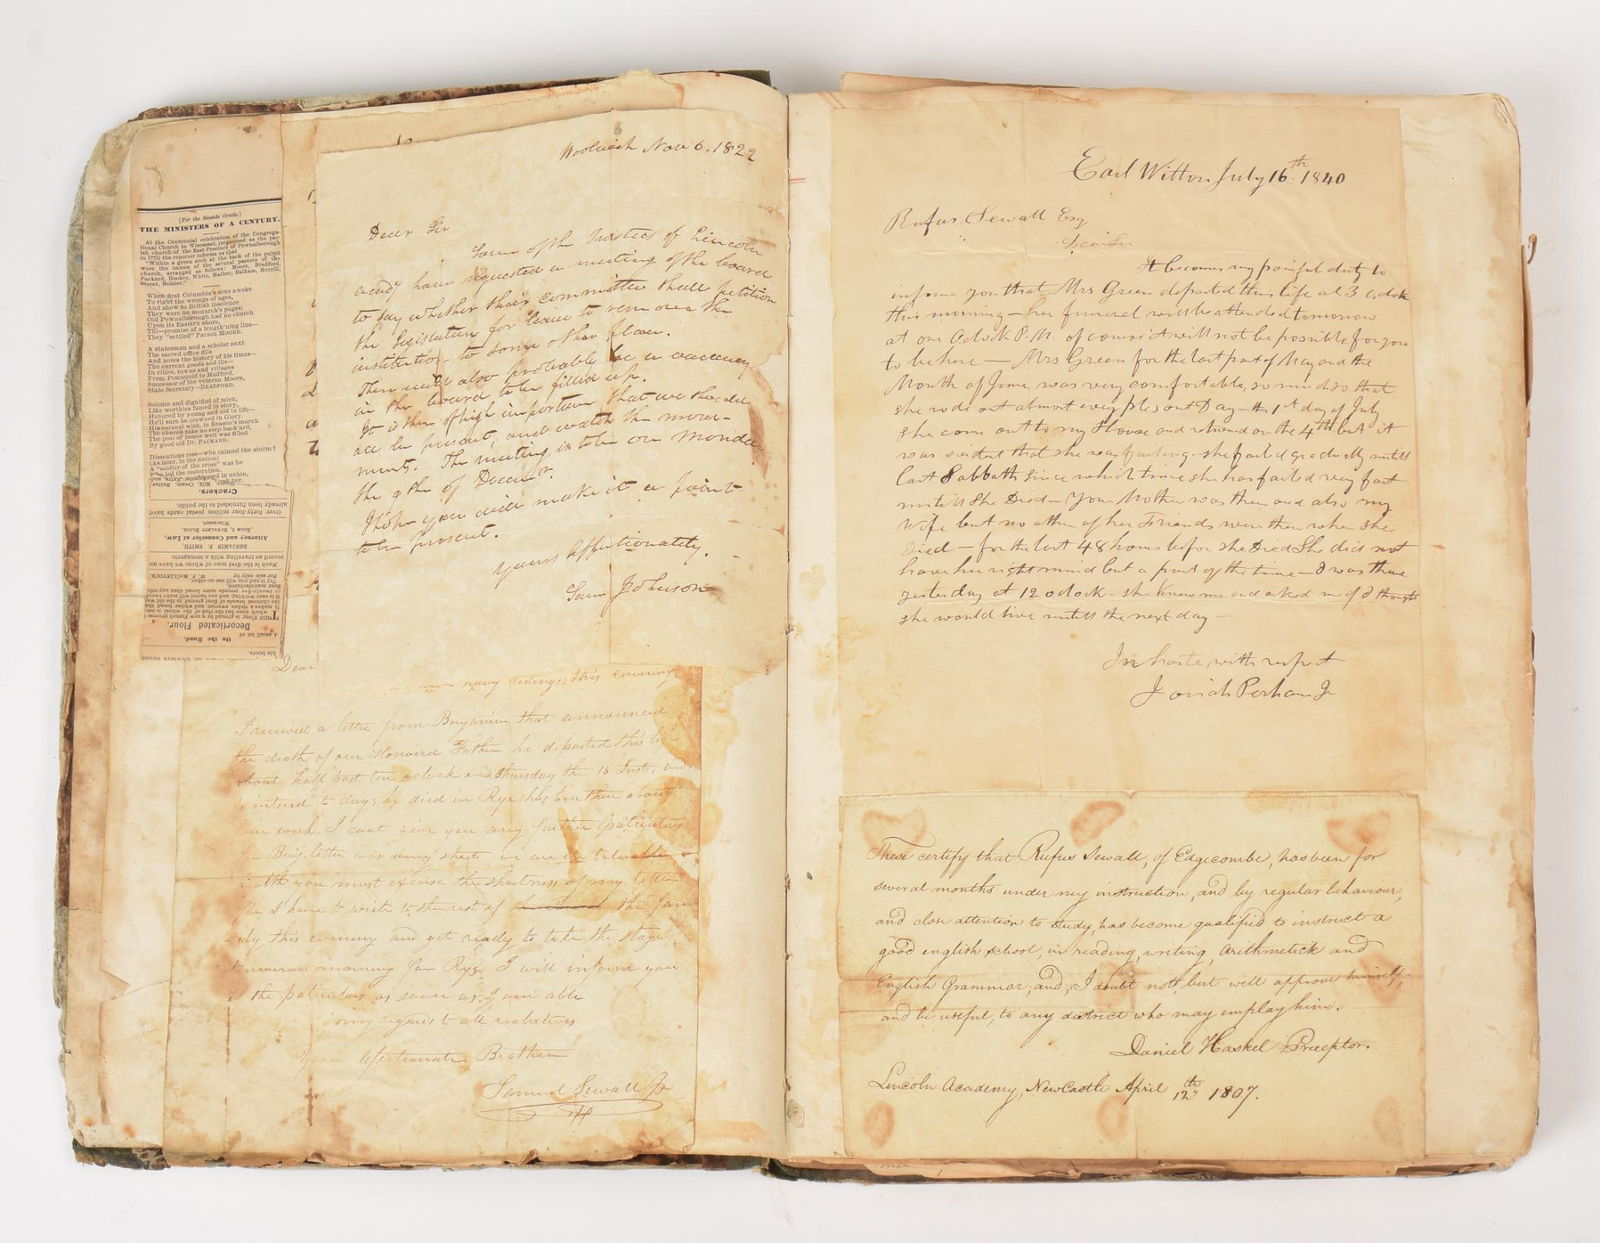 [For the Seaside Oracle.]
THE MINISTERS OF A CENTURY.
At the Centennial celebration of the Congrega-
tional Church in Wiscasset, (organized as the par-
ish church of the East Precinct of Pownalborough
in 1773) the reporter informs us that
"Within a green arch at the back of the pulpit
were the names of the several pastors of the
church, arranged as follows: Moore, Bradford,
Packard, Hooker, White, Mather, Balkam, Merrill,
When first Columbia's sons awoke
To right the wrongs of ages,
And show to British insolence
They were no monarch's pages,
Old Pownalborough had no church
Upon its Eastern shore,
Till—promise of a length'ning line—
They "settled" Parson MOORE.
A statesman and a scholar next
The sacred office fills
And notes the history of his times—
The current goods and ills—
In cities, towns and villages
From Pemaquid to Medford,
Successor of the veteran Moore,
State Secretary—BRADFORD.
Solemn and dignified of mien,
Like worthies famed in story,
Honored by young and old in life—
He'll sure be crowned in Glory.
His earnest wish, in Reason's march
The church take no step backward,
The post of honor well was filled
By good old Dr. PACKARD.
Dissentions rose—who calmed the storm?
(As later, in the nation)
A "soldier of the cross" was he
Who led the restoration.
Crackers.
Over forty-four million postal cards have
already been furnished to the public.
BENJAMIN F. SMITH,
Attorney and Counselor at Law,
Wiscasset.
Noah is the first man of whom we have an
record as traveling with a menagerie.
For sale by W. F. McCLINTOCK.
Try it and you will use no other.
On the Road.
A small lot of
Decorticated Flour.
Woolwich Nov 6. 1822
Dear Sir
Some of the Trustees of Lincoln
academy have requested a meeting of the board
to say whether their committee shall petition
the Legislature for leave to remove the
institution to some other place.
There will also probably be a vacancy
in the board to be filled up.
It is then of high importance that we should
all be present, and watch the move-
ments. The meeting is to be on Monday
the 9th of Decemr.
I hope you will make it a point
to be present.
Yours affectionately,
Sam Johnson
Dear
this evening
I received a letter from Benjamin that announced
the death of our Honoured Father he departed this life
about half past ten o'clock on Thursday the 15 Inst, and
is intered to day; he died in Rye has been there about
four week I cant give you any further particulars
Benj. letter was very short we are in tolerable
health you must excuse the shortness of my letter
for I have to write to the rest of the fam
ily this evening and get ready to take the stage
tomorrow morning for Rye I will inform you
the particulars as soon as I am able
my regards to all relatives
Your Affectionate Brother
Samuel Sewall Jr
East Wilton July 16th 1840
Rufus Sewall Esq
Dear Sir
It becomes my painful duty to
inform you that Mrs Green departed this life at 3 oclok
this morning — her funeral will be attended tomorrow
at one Oclok P.M. of cours it will not be possible for you
to be here — Mrs Green for the last part of May and the
Month of June was very comfortable, so much so that
she rode out almost every plesent Day — the 1st day of July
she come out to my House and returned on the 4th but it
was evident that she was failing — she failed gradually untill
last Sabbath since which time she has failed very fast
untill she Died — Your Mother was there and also my
Wife but no other of her Friends were there when she
Died — for the last 48 hours before she Died She did not
have her right mind but a part of the time — I was there
yesterday at 12 oclock — she knew me and asked me if I thought
she would live untill the next day —
In haste with respect
Josiah Perham Jr
These certify that Rufus Sewall, of Edgecombe, has been for
several months under my instruction, and by regular behaviour,
and close attention to study, has become qualified to instruct a
good english school, in reading, writing, arithmetick and
English Grammar; and, I doubt not, but will approve himself,
and be useful, to any district who may employ him.
Daniel Haskel Preceptor.
Lincoln Academy, NewCastle April 12th 1807.